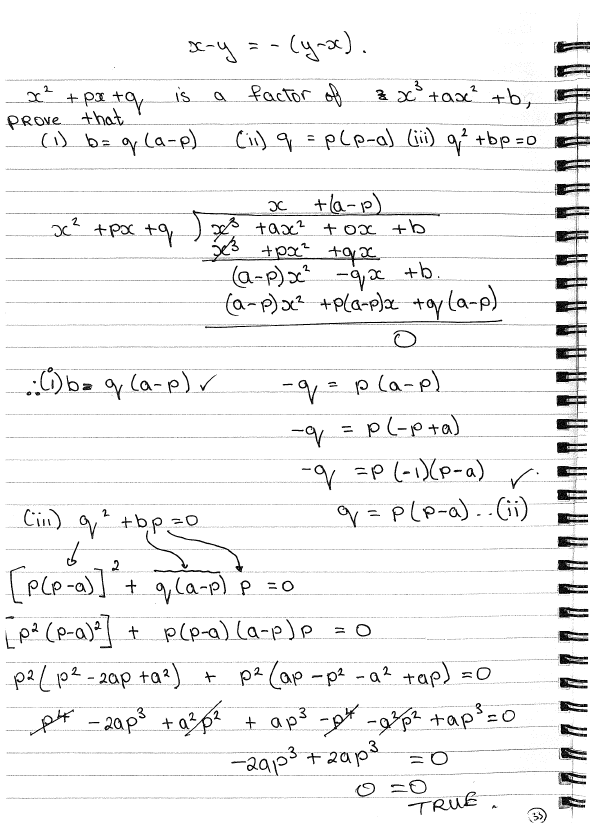 x-y = - (y-x).
x² + px + q is a factor of x³ + ax² + b,
PROVE that
(i) b = q (a-p) (ii) q = p(p-a) (iii) q² + bp = 0
x + (a-p)
x² + px + q ) x³ + ax² + 0x + b
x³ + px² + qx
(a-p)x² - qx + b.
(a-p)x² + p(a-p)x + q(a-p)
0
∴ (i) b = q (a-p) ✓ -q = p (a-p)
-q = p (-p+a)
-q = p (-1)(p-a)
q = p(p-a) .. (ii) ✓
(iii) q² + bp = 0
[p(p-a)]² + q(a-p) p = 0
[p² (p-a)²] + p(p-a) (a-p) p = 0
p² (p² - 2ap + a²) + p² (ap - p² - a² + ap) = 0
p⁴ - 2ap³ + a²p² + ap³ - p⁴ - a²p² + ap³ = 0
-2ap³ + 2ap³ = 0
0 = 0
TRUE.
33